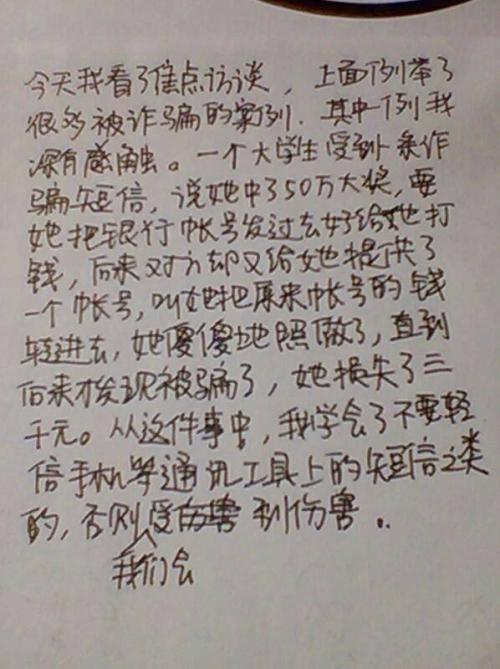 今天我看了焦点访谈，上面例举了
很多被诈骗的案例．其中一例我
深有感触。一个大学生受到一条诈
骗短信，说她中了50万大奖，要
她把银行帐号发过去好给她打
钱，后来对方却又给她提供了
一个帐号，叫她把原来帐号的钱
转进去，她傻傻地照做了，直到
后来才发现被骗了，她损失了三
千元。从这件事中，我学会了不要轻
信手机等通讯工具上的短信之类
的，否则受伤害到伤害．．
我们会